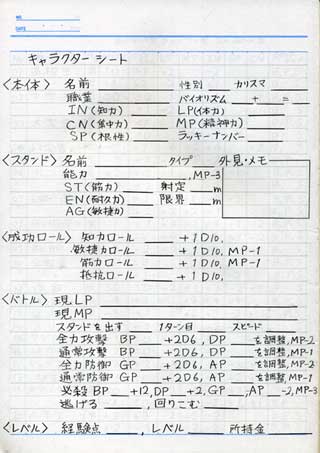 NO.
DATE
キャラクター シート
〈本体〉 名前 性別 カリスマ
職業 バイオリズム + =
IN(知力) LP(体力)
CN(集中力) MP(精神力)
SP(根性) ラッキーナンバー
〈スタンド〉 名前 タイプ 外見・メモ
能力 , MP-3
ST(筋力) 射定 m
EN(耐久力) 限界 m
AG(敏捷力)
〈成功ロール〉 知力ロール +1D10,
敏捷力ロール +1D10, MP-1
筋力ロール +1D10, MP-1
抵抗ロール +1D10,
〈バトル〉 現LP
現MP
スタンドを出す 1ターン目 スピード
全力攻撃 BP +2D6, DP を調整, MP-2
通常攻撃 BP +2D6, DP を調整, MP-1
全力防御 GP +2D6, AP を調整, MP-2
通常防御 GP +2D6, AP を調整, MP-1
必殺 BP +12, DP +2, GP , AP -2, MP-3
逃げる , 回りこむ
〈レベル〉 経験点 , レベル 所持金